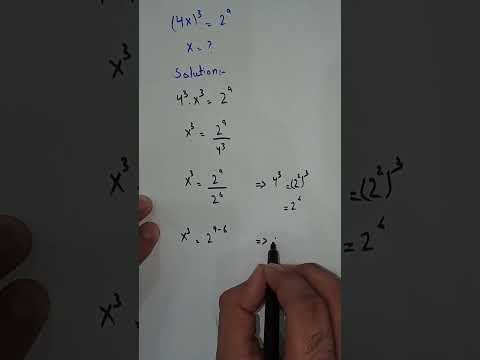 (4x)³ = 2⁹
x = ?
Solution:-
4³ · x³ = 2⁹
x³ = 2⁹ / 4³
x³ = 2⁹ / 2⁶ => 4³ = (2²)³
= 2⁶
x³ = 2⁹⁻⁶ =>